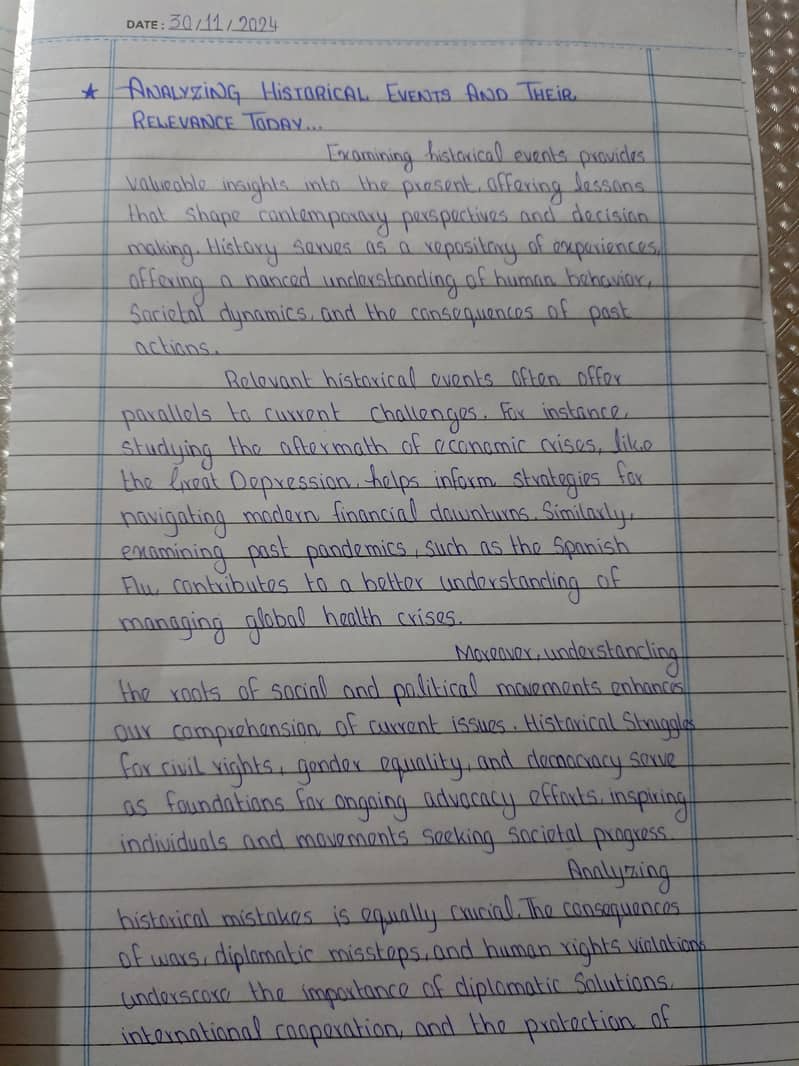 DATE: 30/11/2024
★ ANALYZING HISTORICAL EVENTS AND THEIR
RELEVANCE TODAY...
Examining historical events provides
valueable insights into the present, offering lessons
that shape contemporary perspectives and decision
making. History serves as a repository of experiences,
offering a nanced understanding of human behavior,
Societal dynamics, and the consequences of past
actions.
Relevant historical events often offer
parallels to current challenges. For instance,
studying the aftermath of economic crises, like
the Great Depression, helps inform strategies for
navigating modern financial downturns. Similarly,
examining past pandemics, such as the Spanish
Flu, contributes to a better understanding of
managing global health crises.
Moreover, understanding
the roots of social and political movements enhances
our comprehension of current issues. Historical Struggles
for civil rights, gender equality, and democracy serve
as foundations for ongoing advocacy efforts, inspiring
individuals and movements seeking societal progress.
Analyzing
historical mistakes is equally crucial. The consequences
of wars, diplomatic missteps, and human rights violations
underscore the importance of diplomatic Solutions,
international cooperation, and the protection of